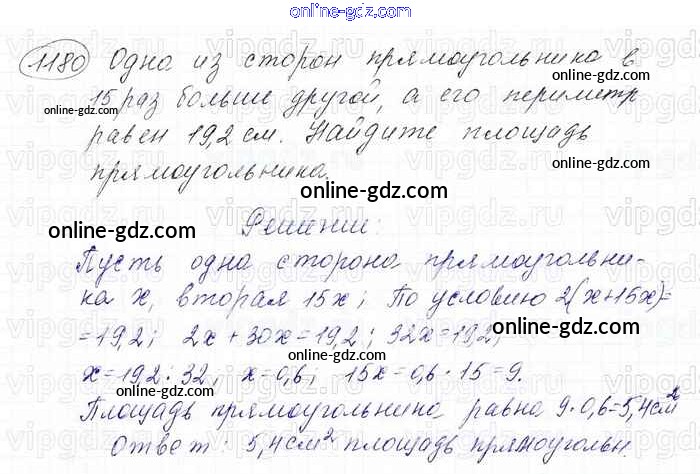 online-gdz.com
1180 Одна из сторон прямоугольника в
15 раз больше другой, а его периметр
равен 19,2 см. Найдите площадь
прямоугольника.
Решение:
Пусть одна сторона прямоугольни-
ка x, вторая 15x; По условию 2(x+15x)=
=19,2; 2x+30x=19,2; 32x=19,2;
x=19,2:32, x=0,6; 15x=0,6·15=9.
Площадь прямоугольника равна 9·0,6=5,4см²
Ответ: 5,4см² площадь прямоугольн.
online-gdz.com
online-gdz.com
online-gdz.com
online-gdz.com
online-gdz.com
online-gdz.com
online-gdz.com
online-gdz.com
online-gdz.com
online-gdz.com